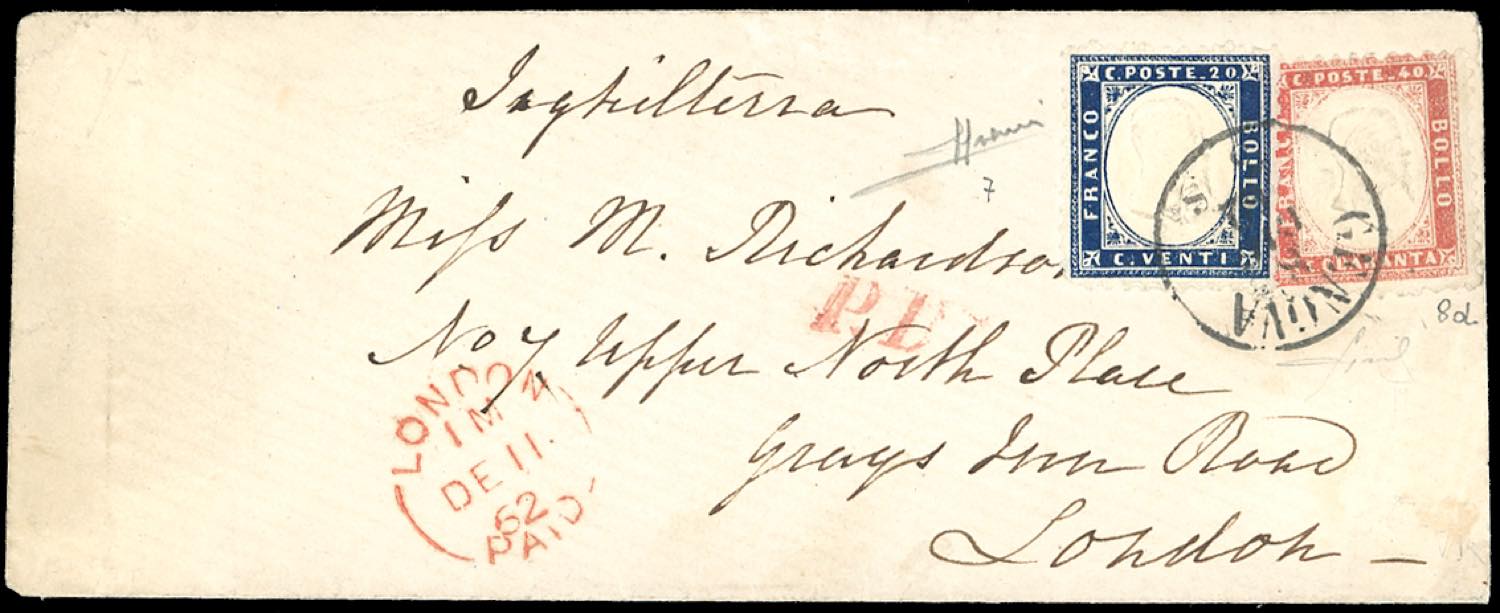 Inghilterra
Miss M. Richardson
No 7 Upper North Place
Grays Inn Road
London
C. POSTE. 20
FRANCO
BOLLO
C. VENTI
C. POSTE. 40
FRANCO
BOLLO
C. QUARANTA
GENOVA
P.D.
LONDON
1 M
DE 11
62
PAID
7
8d